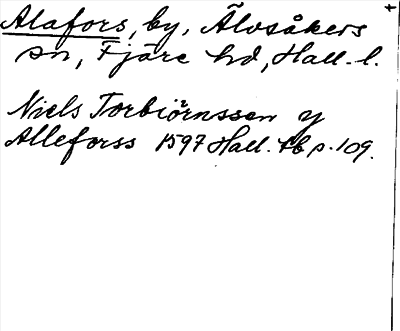 Alafors, by, Älvsåkers
sn, Fjäre hd, Hall. l.
Niels Torbiörnssen y
Alleforss 1597 Hall. tb p. 109.